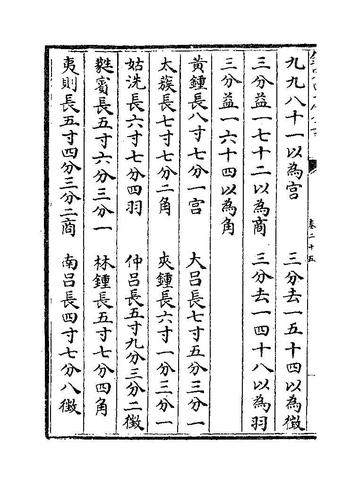 九九八十一以為宮　三分去一五十四以為徵
三分益一七十二以為商　三分去一四十八以為羽
三分益一六十四以為角
黃鍾長八寸七分一宮　大呂長七寸五分三分一
太蔟長七寸七分二角　夾鍾長六寸一分三分一
姑洗長六寸七分四羽　仲呂長五寸九分三分二徵
蕤賓長五寸六分三分一　林鍾長五寸七分四角
夷則長五寸四分三分二商　南呂長四寸七分八徵
卷二十五